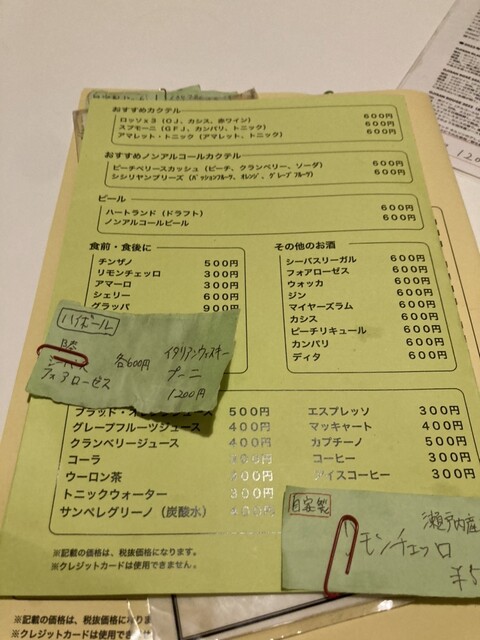 おすすめカクテル
ロッソx3（OJ、カシス、赤ワイン） 600円
スプモーニ（GFJ、カンパリ、トニック） 600円
アマレット・トニック（アマレット、トニック） 600円
おすすめノンアルコールカクテル
ピーチベリースカッシュ（ピーチ、クランベリー、ソーダ） 600円
シシリヤンブリーズ（パッションフルーツ、オレンジ、グレープフルーツ） 600円
ビール
ハートランド（ドラフト） 600円
ノンアルコールビール 600円
食前・食後に
チンザノ 500円
リモンチェッロ 300円
アマーロ 300円
シェリー 600円
グラッパ 900円
その他のお酒
シーバスリーガル 600円
フォアローゼス 600円
ウォッカ 600円
ジン 600円
マイヤーズラム 600円
カシス 600円
ピーチリキュール 600円
カンパリ 600円
ディタ 600円
ハイボール
フォアローゼス
各600円
イタリアンウィスキー
プーニ
1200円
ブラッド・オレンジジュース 500円
グレープフルーツジュース 400円
クランベリージュース 400円
コーラ
ウーロン茶
トニックウォーター 300円
サンペレグリーノ（炭酸水）
エスプレッソ 300円
マッキャート 400円
カプチーノ 500円
コーヒー 300円
アイスコーヒー 300円
自家製
瀬戸内産
リモンチェッロ
※記載の価格は、税抜価格になります。
※クレジットカードは使用できません。
※記載の価格は、税抜価格になりま
※クレジットカードは使用でき